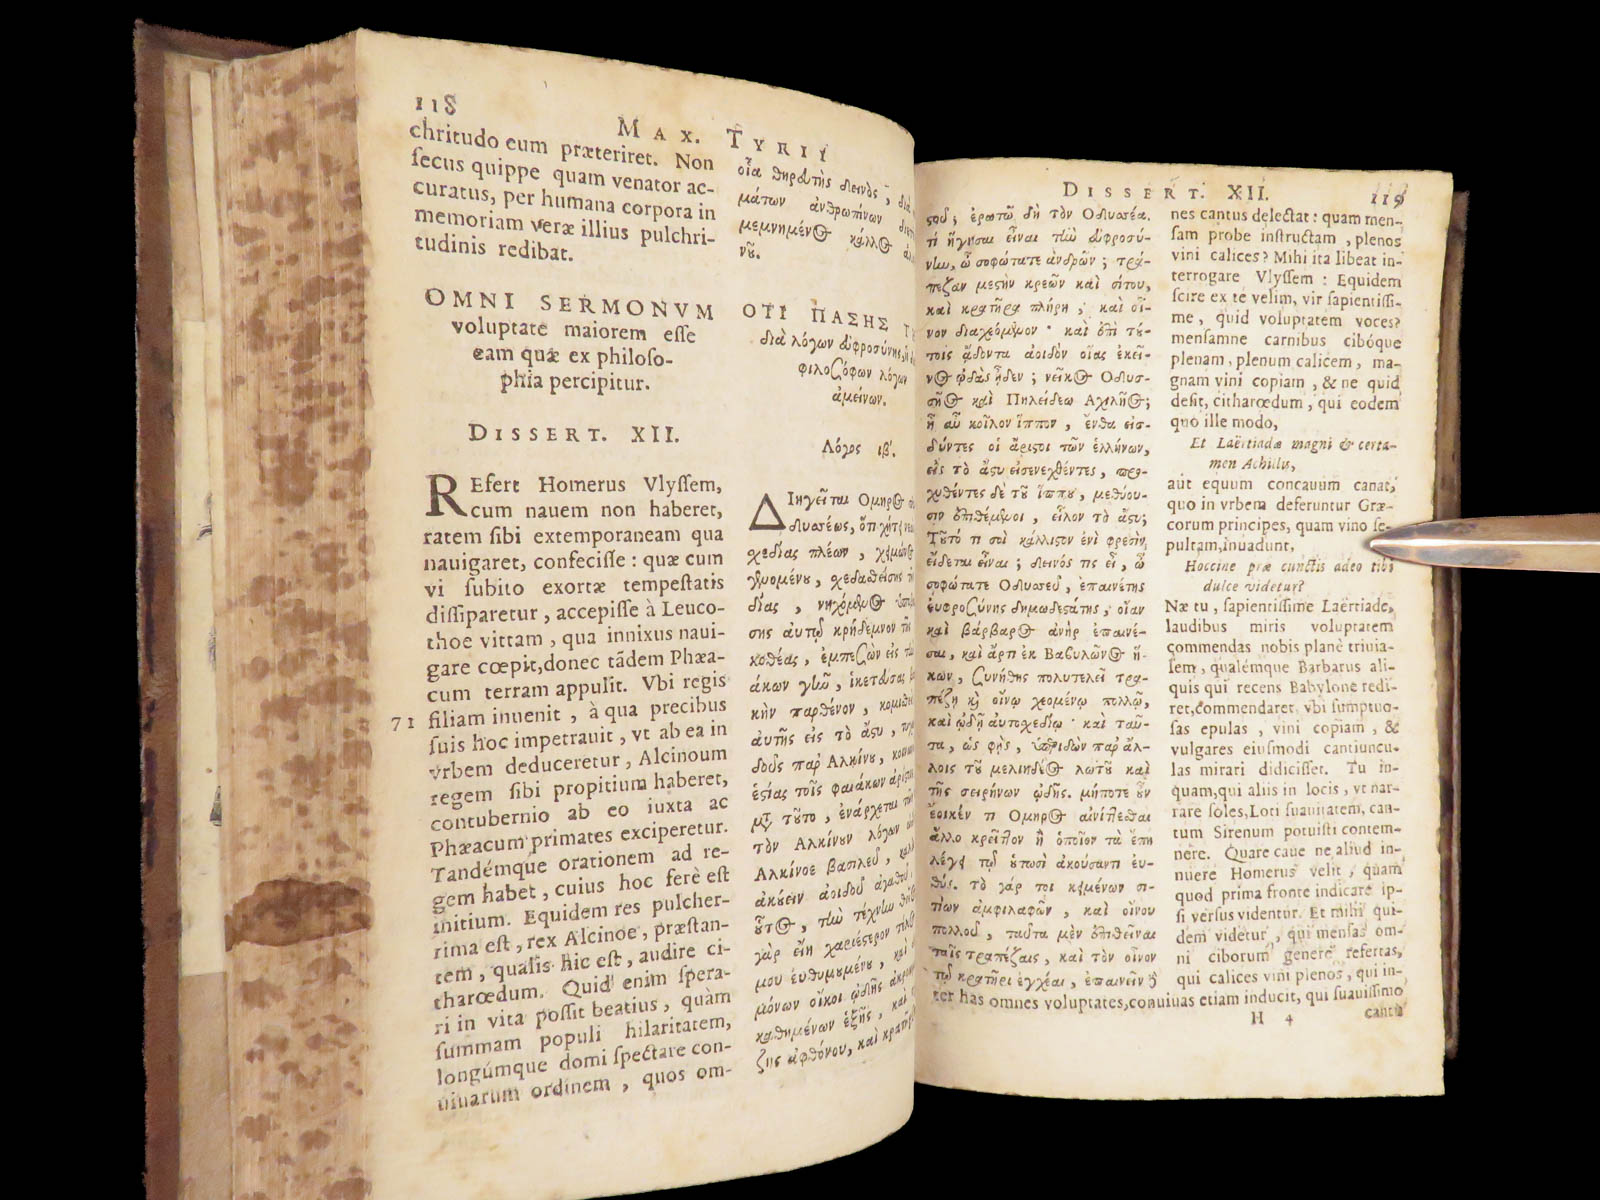 118
MAX. TYRII
chritudo eum præteriret. Non
secus quippe quam venator ac-
curatus, per humana corpora in
memoriam veræ illius pulchri-
tudinis redibat.
OMNI SERMONVM
voluptate maiorem esse
eam quæ ex philoso-
phia percipitur.
DISSERT. XII.
REfert Homerus Vlyssem,
cum nauem non haberet,
ratem sibi extemporaneam qua
nauigaret, confecisse : quæ cum
vi subito exortæ tempestatis
dissiparetur, accepisse à Leuco-
thoe vittam, qua innixus naui-
gare cœpit, donec tādem Phæa-
cum terram appulit. Vbi regis
71 filiam inuenit, à qua precibus
suis hoc impetrauit, vt ab ea in
vrbem deduceretur, Alcinoum
regem sibi propitium haberet,
contubernio ab eo iuxta ac
Phæacum primates exciperetur.
Tandémque orationem ad re-
gem habet, cuius hoc ferè est
initium. Equidem res pulcher-
rima est, rex Alcinoe, præstan-
tem, qualis hic est, audire ci-
tharœdum. Quid enim spera-
ri in vita possit beatius, quàm
summam populi hilaritatem,
longúmque domi spectare con-
uiuarum ordinem, quos om-
οἷα θηρευτὴς δεινὸς,
μάτων ἀνθρωπίνων
μεμνημένος κάλλος
νῦ.
ΟΤΙ ΠΑΣΗΣ
διὰ λόγων εὐφροσύνης,
φιλοσόφων λόγων
ἀμείνων.
Λόγος ιβ'.
ΔΙηγεῖται Ομηρος
χεδίας πλέων,
γενομένου, χεδιασθείσης
δίας, νηχόμενος
σης αὐτῷ κρήδεμνον τῆς
κοθέας, ἐμπεζὼν εἰς
άκων γεῶ, ἱκετεύσας
κὴν παρθένον,
αὐτῆς εἰς τὸ ἄςυ,
δοὺς παρ Αλκίνῳ,
ἑςίας τοῖς φαιάκων
μετ τοῦτο, ἐνάρχεται
τὸν Αλκίνουν λόγων
Αλκίνοε βασιλεῦ,
ἀκούειν ἀοιδοῦ ἀγαθοῦ
οὗτος, τίω τέχνίω
γὰρ εἴη χαριέςερον
μου εὐθυμουμένου,
μόνων οἴκοι ᾠδῆς
καθημένων ἑξῆς,
ζης ἀφθόνου, καὶ
DISSERT. XII.
119
ςοῦ; ἐρωτῶ δὴ τὸν Οδυσσέα.
τί ἥγησαι εἶναι τίω εὐφροσύ-
νίω, ὦ σοφώτατε ἀνδρῶν; τρά-
πεζαν μεςὴν κρεῶν καὶ σίτου,
καὶ κρατῆρα πλήρη; καὶ οἶ-
νον διαχεόμενον· καὶ ἐπὶ τύ-
τοις ᾄδοντα ἀοιδὸν οἵας ἐκεῖ-
νος ᾠδὰς ᾖδεν; νεῖκος Οδυσ-
σῆος καὶ Πηλείδεω Αχιλῆος;
ἢ αὖ κοῖλον ἵππον, ἔνθα εἰσ-
δύντες οἱ ἄριςοι τῶν ἑλλήνων,
εἰς τὸ ἄςυ εἰσενεχθέντες, προ-
χυθέντες δὲ τοῦ ἵππου, μεθύου-
σιν ἐπιθέμενοι, εἷλον τὸ ἄςυ;
Τοῦτό τι σοὶ κάλλιςον ἐνὶ φρεσὶν
εἴδεται εἶναι; δεινός τις εἶ, ὦ
σοφώτατε Οδυσσεῦ, ἐπαινέτης
εὐφροσύνης δημωδεςάτης, οἵαν
καὶ βάρβαρος ἀνὴρ ἐπαινέ-
σαι, καὶ ἄρτι ἐκ Βαβυλῶνος ἥ-
κων, συνήθης πολυτελεῖ τρα-
πέζῃ καὶ οἴνῳ χεομένῳ πολλῷ,
καὶ ᾠδῇ αὐτοχεδίῳ· καὶ ταῦ-
τα, ὡς φῂς, ὑπεριδὼν παρ ἄλ-
λοις τοῦ μελιηδέος λωτοῦ καὶ
τῆς σειρήνων ᾠδῆς. μήποτε οὖν
ἔοικέν τι Ομηρος αἰνίττεσθαι
ἄλλο κρεῖττον ἢ ὁποῖον τὰ ἔπη
λέγει τῷ οὑτωσὶ ἀκούσαντι εὐ-
θύς. τὸ γάρ τοι κειμένων σι-
τίων ἀμφιλαφῶν, καὶ οἴνου
πολλοῦ, ταῦτα μὲν ἐπιθεῖναι
ταῖς τραπέζαις, καὶ τὸν οἶνον
τῷ κρατῆρι ἐγχέαι, ἐπαινεῖν
nes cantus delectat : quam men-
sam probe instructam, plenos
vini calices? Mihi ita libeat in-
terrogare Vlyssem : Equidem
scire ex te velim, vir sapientissi-
me, quid voluptatem voces?
mensamne carnibus cibóque
plenam, plenum calicem, ma-
gnam vini copiam, & ne quid
desit, citharœdum, qui eodem
quo ille modo,
Et Laërtiadæ magni & certa-
men Achillis,
aut equum concauum canat,
quo in vrbem deferuntur Græ-
corum principes, quam vino se-
pultam, inuadunt,
Hoccine præ cunctis adeo tibi
dulce videtur?
Næ tu, sapientissime Laërtiade,
laudibus miris voluptatem
commendas nobis planè triuia-
lem, qualémque Barbarus ali-
quis qui recens Babylone redi-
ret, commendaret, vbi sumptuo-
sas epulas, vini copiam, &
vulgares eiusmodi cantiuncu-
las mirari didicisset. Tu in-
quam, qui aliis in locis, vt nar-
rare soles, Loti suauitatem, can-
tum Sirenum potuisti contem-
nere. Quare caue ne aliud in-
nuere Homerus velit, quam
quod prima fronte indicare ip-
si versus videntur. Et mihi qui-
dem videtur, qui mensas om-
ni ciborum genere refertas,
qui calices vini plenos, qui in-
ter has omnes voluptates, conuiuas etiam inducit, qui suauissimo
H 4
cantu